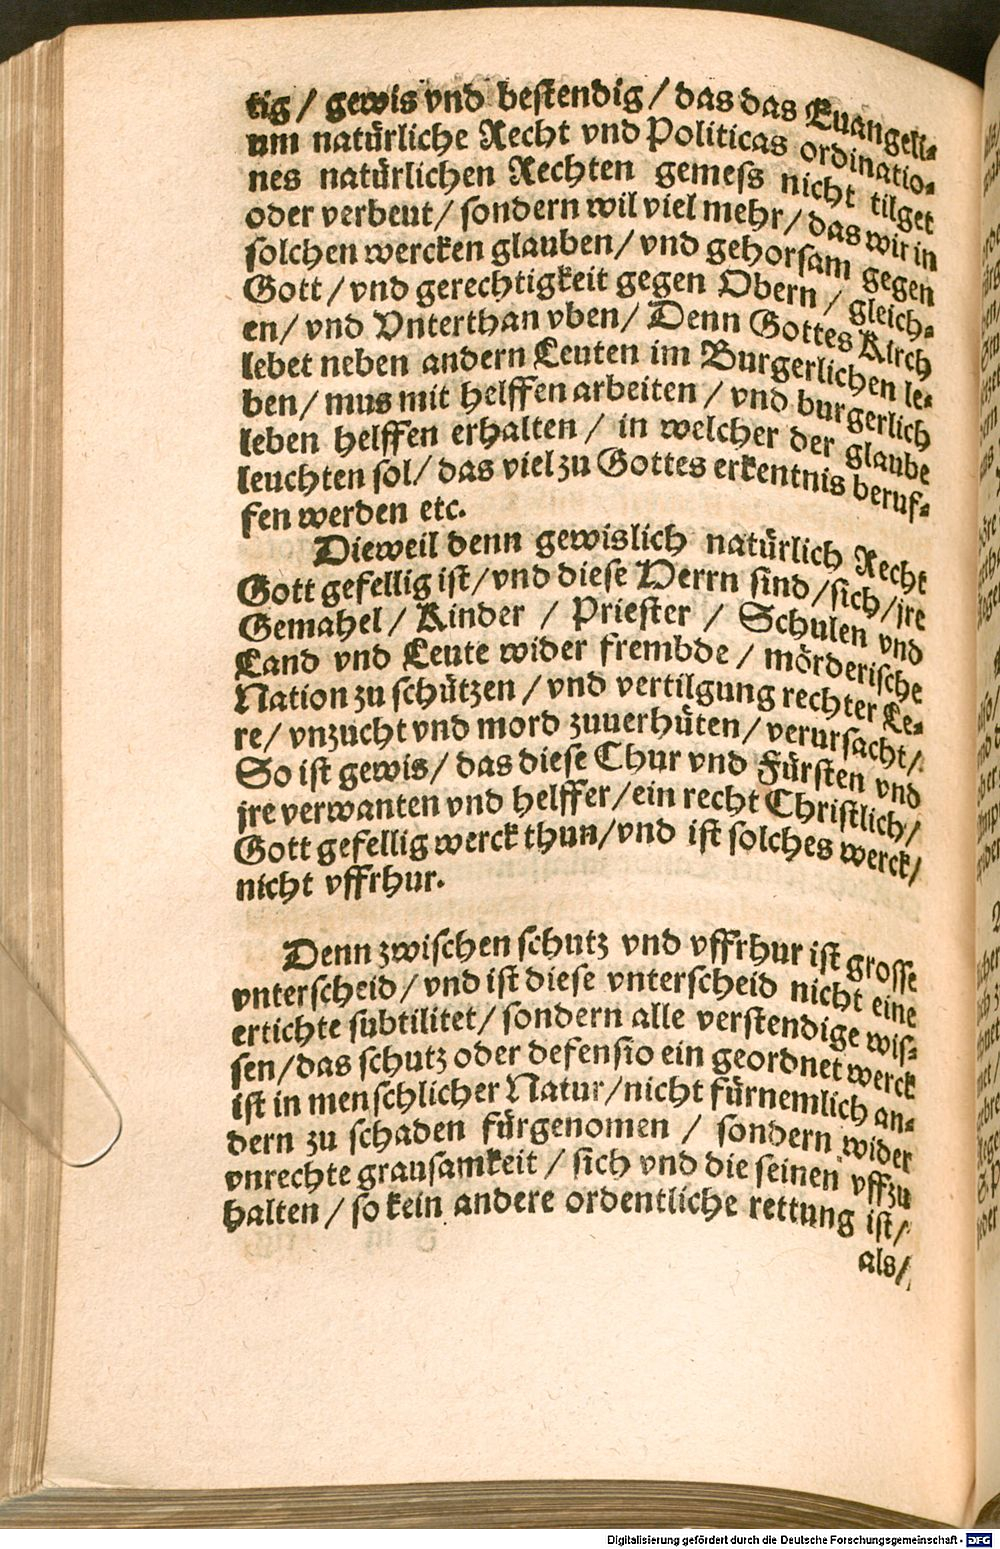 tig / gewis vnd bestendig / das das Euangeli⸗
um natürliche Recht vnd Politicas ordinatio⸗
nes natürlichen Rechten gemess nicht tilget
oder verbeut / sondern wil viel mehr / das wir in
solchen wercken glauben / vnd gehorsam gegen
Gott / vnd gerechtigkeit gegen Obern / gleich⸗
en / vnd Vnterthan vben / Denn Gottes Kirch
lebet neben andern Leuten im Burgerlichen le⸗
ben / mus mit helffen arbeiten / vnd burgerlich
leben helffen erhalten / in welcher der glaube
leuchten sol / das viel zu Gottes erkentnis beruf⸗
fen werden etc.
Dieweil denn gewislich natürlich Recht
Gott gefellig ist / vnd diese Herrn sind / sich / jre
Gemahel / Kinder / Priester / Schulen vnd
Land vnd Leute wider frembde / mörderische
Nation zu schützen / vnd vertilgung rechter Le⸗
re / vnzucht vnd mord zuuerhüten / verursacht /
So ist gewis / das diese Chur vnd Fürsten vnd
jre verwanten vnd helffer / ein recht Christlich /
Gott gefellig werck thun / vnd ist solches werck /
nicht vffrhur.
Denn zwischen schutz vnd vffrhur ist grosse
vnterscheid / vnd ist diese vnterscheid nicht eine
ertichte subtilitet / sondern alle verstendige wis⸗
sen / das schutz oder defensio ein geordnet werck
ist in menschlicher Natur / nicht fürnemlich an⸗
dern zu schaden fürgenomen / sondern wider
vnrechte grausamkeit / sich vnd die seinen vffzu
halten / so kein andere ordentliche rettung ist /
als /
Digitalisierung gefördert durch die Deutsche Forschungsgemeinschaft - DFG